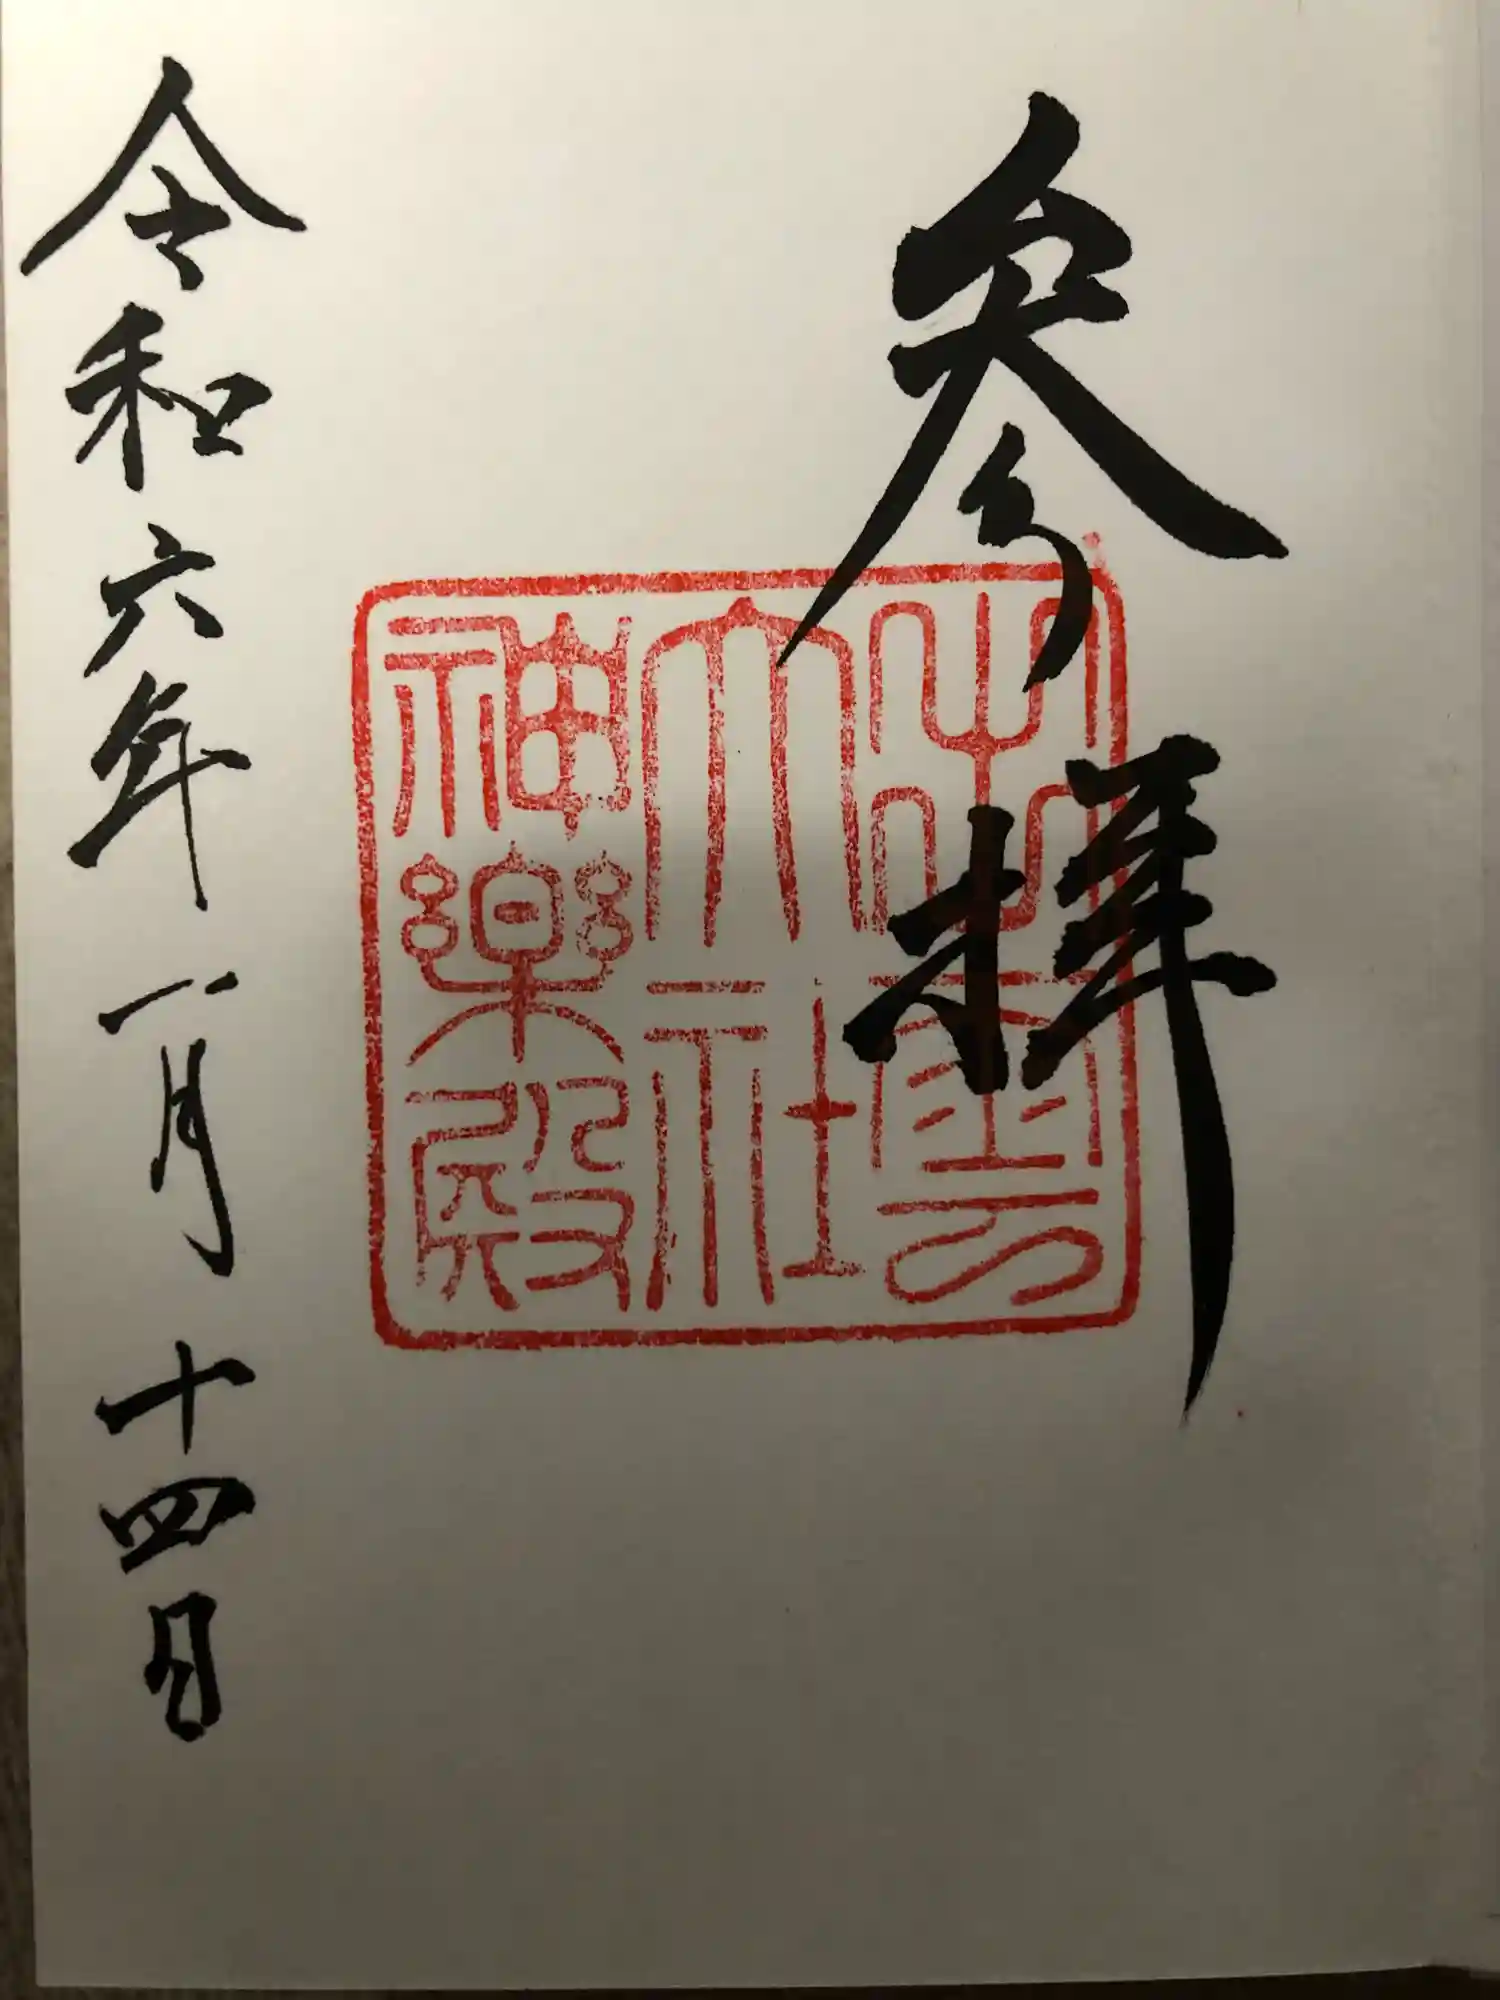 参拝
出雲
大社
神楽殿
令和六年一月十四日